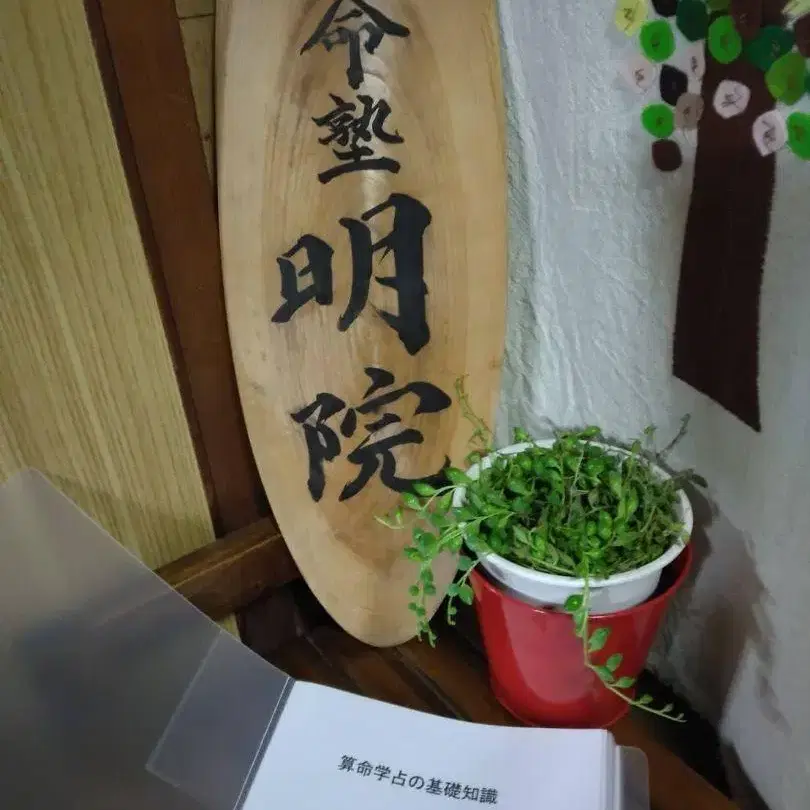 命塾明院
算命学占の基礎知識